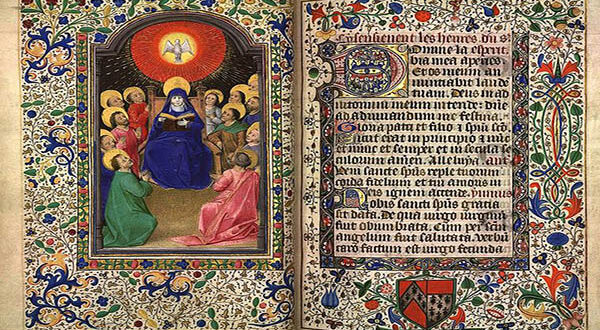 les heures du s
Domine la
bia mea aperies
Et os meum an
nuntiabit laude
Deus in
torium meum intende: dñe
ad adiuuandum me festina.
Gloria patri et filio
Sicut erat in principio
et semper et in secula
culorum amen. Alleluya.
Veni sancte spūs reple tuorum
corda fidelium et tui amoris in
eis ignem accende.
Nobis sancti spūs gratia
sit data. De qua uirgo
fuit obumbrata. Cum per
angelum fuit salutata. Verbū
caro factum est uirgo fecunda.